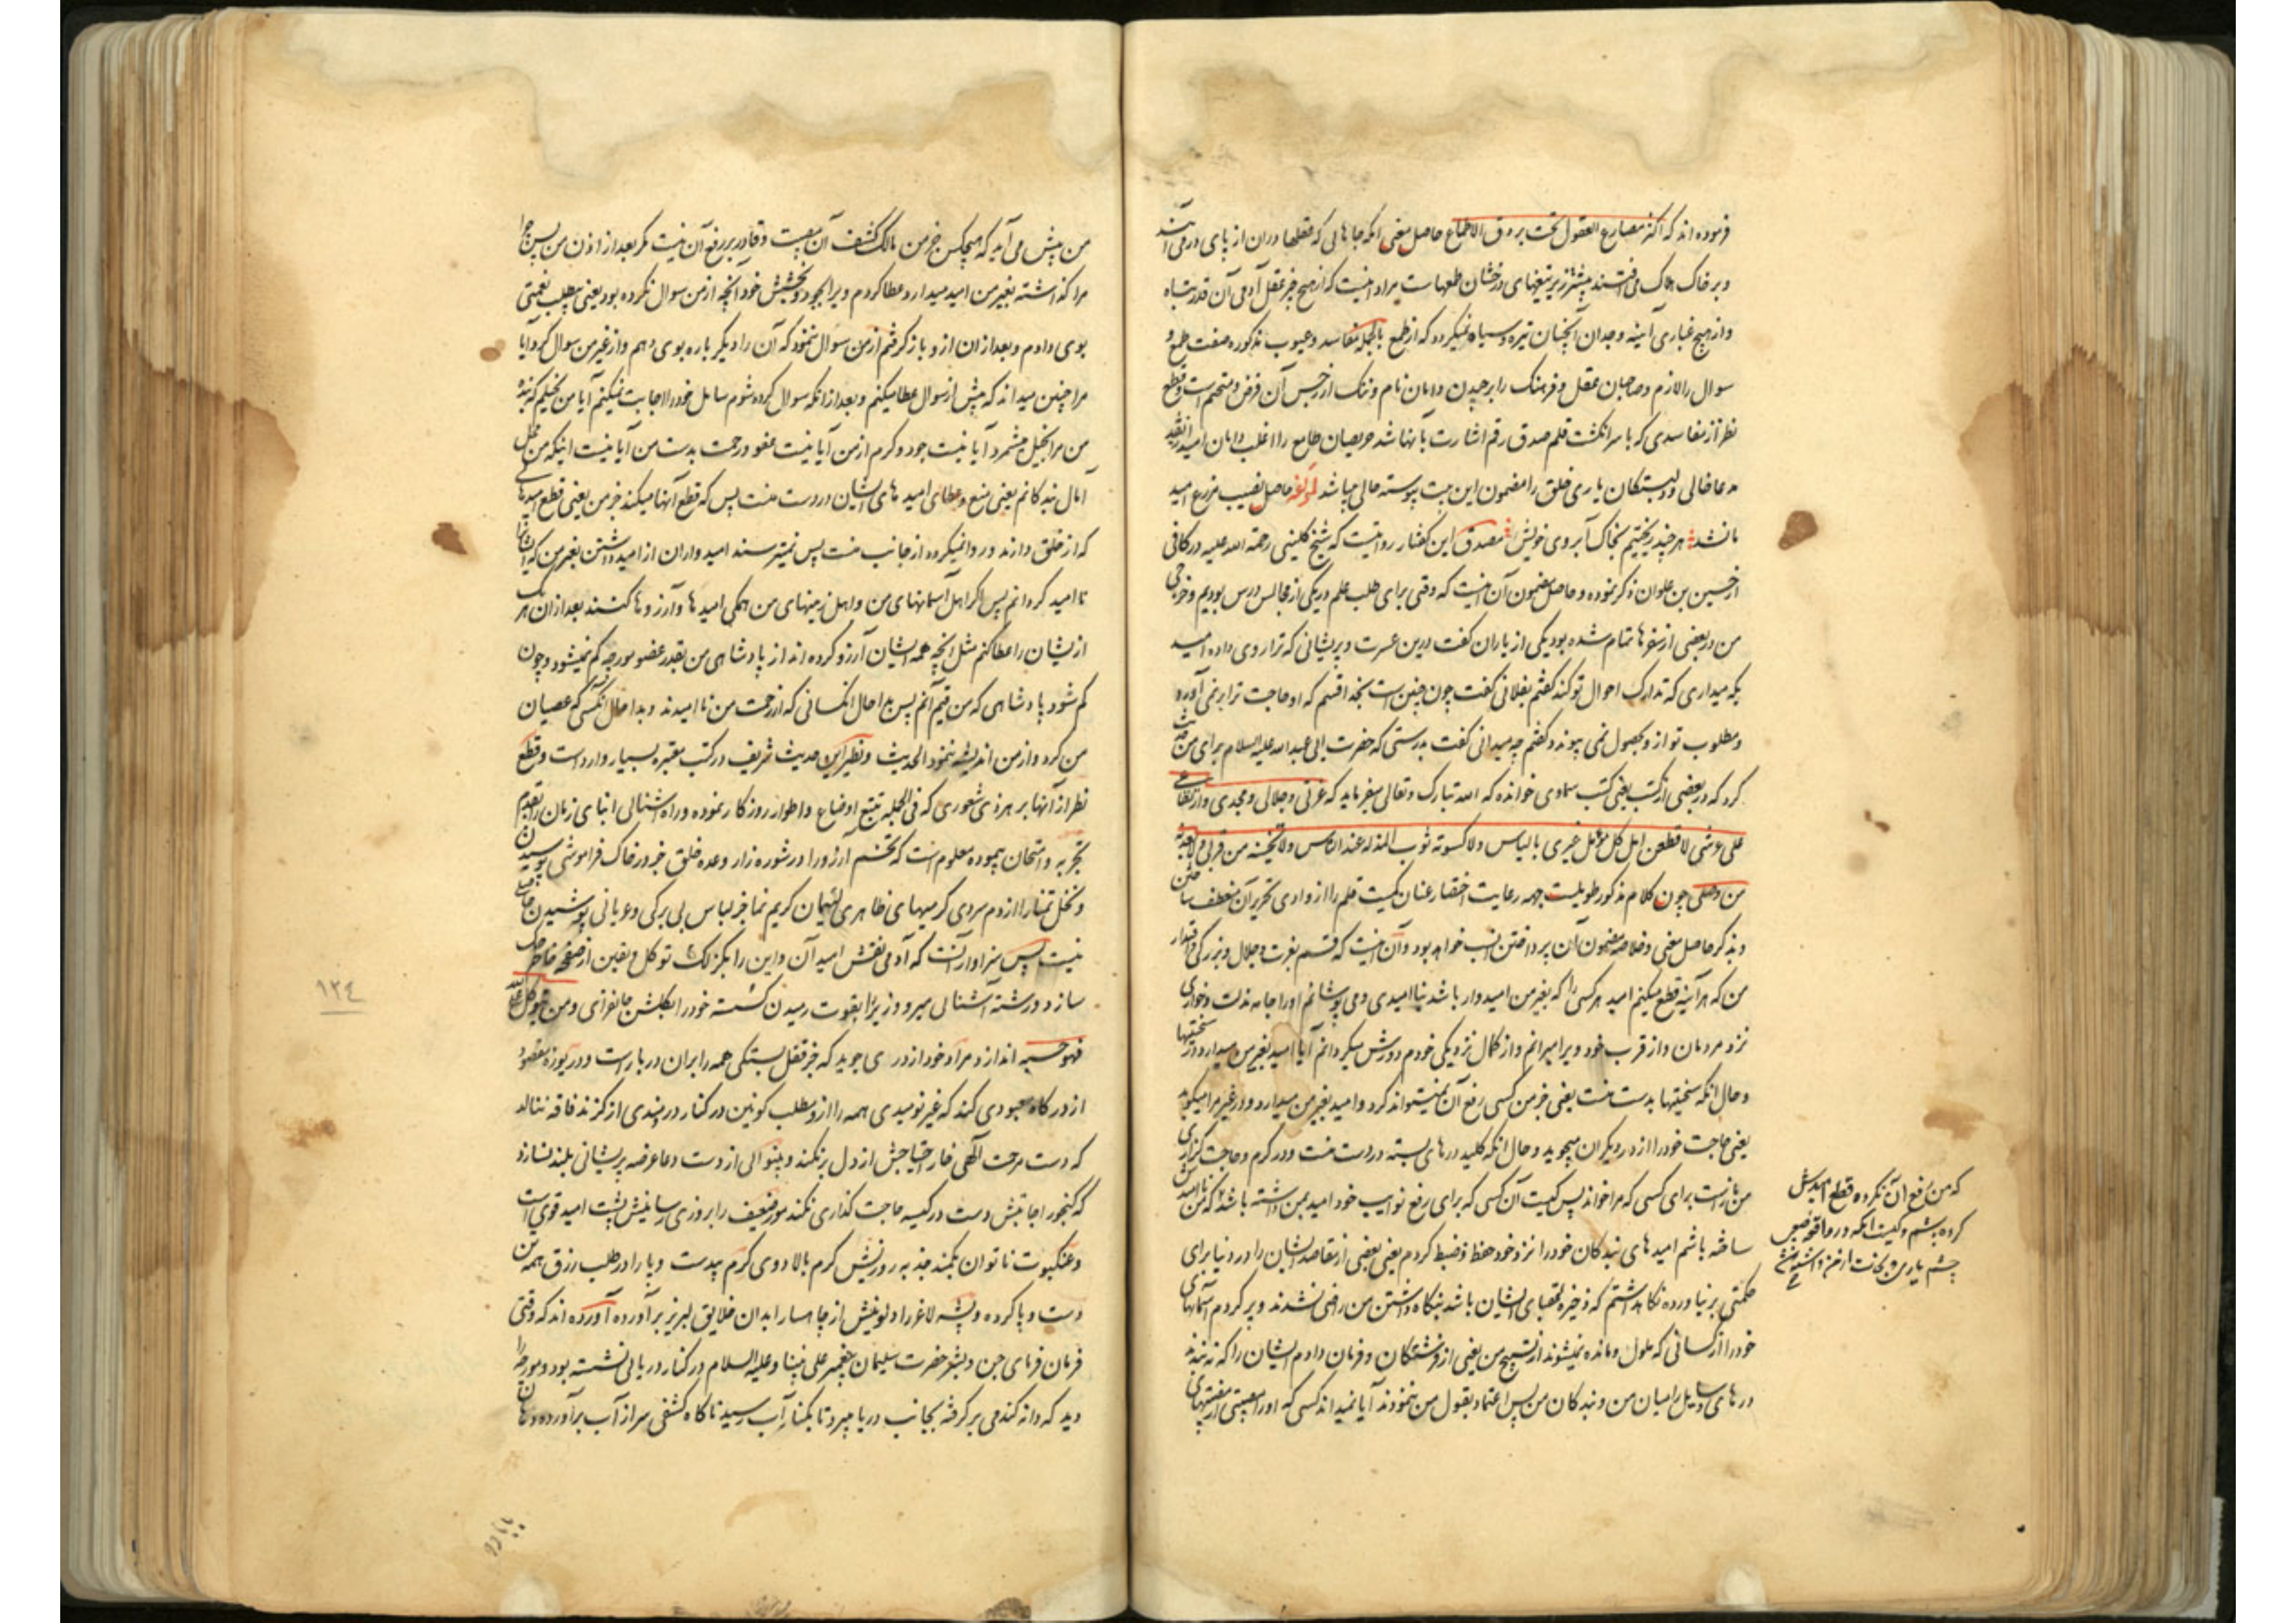 فرموده اند که اکثر مصارع العقول تحت بروق الاطماع حاصل معنی انکه جاهائی که عقلها دران از پای درمی آیند
و بر خاک هلاک می افتند بیشتر زیر تیغهای درخشان طمعهاست مراد اینست که از هیچ چیز عقل آدمی آن قدر تباه
و از هیچ غباری آینه وجدان آنچنان تیره و سیاه نمیکردد که از طمع بالجمله مفاسد و عیوب مذکوره صفت طمع و
سوال را لازم و صاحبان عقل و فرهنک را برچیدن دامان نام و ننک از خس آن فرض و متحتم است و قطع
نظر از مفاسدی که با سر انکشت قلم صدق رقم اشارت بآنها شد حریصان طامع را اغلب دامان امید از نقد
مدعا خالی و دلبستکان یاری خلق را مضمون این بیت پیوسته حالی میباشد لمؤلفه حاصل نصیب مزرع امید
ما نشد هر چند ریختیم بخاک آبروی خویش مصدق این کفتار روایتیست که شیخ کلینی رحمة الله علیه در کافی
از حسین بن علوان ذکر نموده و حاصل مضمون آن اینست که وقتی برای طلب علم در یکی از مجالس درس بودیم و خرجی
من در بعضی از سفرها تمام شده بود یکی از یاران کفت درین عسرت و پریشانی که ترا روی داده امید
بکه میداری که تدارک احوال تو کند کفتم بفلانی کفت چون چنین است بخدا قسم که او حاجت ترا بر نمی آورد
و مطلوب تو از و بحصول نمی پیوندد کفتم چه میدانی کفت بدرستی که حضرت ابی عبد الله علیه السلام برای من حدیث
کرد که در بعضی از کتب یعنی کتب سماوی خوانده که الله تبارک و تعالی میفرماید که عزتی و جلالی و مجدی و ارتفاعی
علی عرشی لاقطعن امل کل مؤمل غیری بالیاس و لاکسونه ثوب المذلة عند الناس و لانحینه من قربی و لابعدنه
من وصلی چون کلام مذکور طویلست جهه رعایت اختصار عنان کمیت قلم را از وادی تحریر آن منعطف ساختن
و بذکر حاصل معنی و خلاصه مضمون آن پرداختن انسب خواهد بود و آن اینست که قسم بعزت و جلال و بزرکی و اقتدار
من که هر آینه قطع میکنم امید هر کسی را که بغیر من امیدوار باشد بناامیدی و می پوشانم او را جامه مذلت و خواری
نزد مردمان و از قرب خود ویرا میرانم و از کمال نزدیکی خودم دورش میکردانم آیا امید بغیر من میدارد در سختیها
و حال انکه سختیها بدست منست یعنی جز من کسی رفع آن نمیتواند کرد و امید بغیر من میدارد و در غیر مرا میکوبد
یعنی حاجت خود را از در دیکران میجوید و حال انکه کلید درهای بسته در دست منست و در کرم و حاجت کزاری
من بازست برای کسی که مرا خواند پس کیست آن کسی که برای رفع نوایب خود امید بمن داشته باشد که من ناامیدش
ساخته باشم امیدهای بندکان خود را نزد خود حفظ و ضبط کردم یعنی بعضی از مقاصد ایشان را در دنیا برای
حکمتی بر نیاورده نکاه داشتم که ذخیره عقبای ایشان باشد بنکاه داشتن من راضی نشدند و پر کردم آسمانهای
خود را از کسانی که ملول و مانده نمیشوند از تسبیح من یعنی از فرشتکان و فرمان دادم ایشان را که نه بندند
درهای وسایل را میان من و بندکان من پس اعتماد بقول من ننمودند آیا نمیداند کسی که او را مصیبتی از مصیبتهای
که من رفع آن نکرده قطع امیدش
کرده باشم و کیست انکه در
چشم یاری بجانب من داشته
من پیش می آید که هیچکس جز من مالک کشف آن مصیبت و قادر بر رفع آن نیست مکر بعد از اذن من پس چرا
مرا کذاشته بغیر من امید میدارد عطا کردم ویرا بجود و بخشش خود آنچه از من سوال نکرده بود یعنی بیطلب نعمتی
بوی دادم و بعد از ان از و باز کرفتم از من سوال ننمود که آن را دیکر باره بوی دهم و از غیر من سوال کرد آیا
مرا چنین میداند که پیش از سوال عطا میکنم و بعد از انکه سوال کرده شوم سایل خود را اجابت نمیکنم آیا من بخیلم که بنده
من مرا بخیل میشمرد آیا نیست جود و کرم از من آیا نیست عفو و رحمت بدست من آیا نیست اینکه من محل
آمال بندکانم یعنی منع و عطای امیدهای ایشان در دست منست پس که قطع آنها میکند جز من یعنی قطع امیدهای
که از خلق دارند و روا نمیکردد از جانب منست پس نمیترسند امیدواران از امید داشتن بغیر من که ایشانرا
ناامید کردانم پس اکر اهل آسمانهای من و اهل زمینهای من همکی امیدها و آرزوها کنند بعد از ان هر یک
از یشان را عطا کنم مثل انچه همه ایشان آرزو کرده اند از پادشاهی من بقدر عضو مورچه کم نمیشود و چون
کم شود پادشاهی که من قیم آنم پس بدا حال انکسانی که از رحمت من ناامیدند و بدا حال انکسی که عصیان
من کرد و از من اندیشه ننمود الحدیث و نظیر این حدیث شریف در کتب معتبره بسیار وارد است و قطع
نظر از آنها بر هر ذی شعوری که فی الجمله تتبع اوضاع و اطوار روزکار نموده و راه آشنائی ابنای زمان را بقدم
تجربه و امتحان پیموده معلوم است که تخم آرزو را در شوره زار وعده خلق جز در خاک فراموشی پوسیدن
و نخل تمنا را از دم سردی کرمیهای ظاهری لئیمان کریم نما جز لباس بی برکی و عریانی پوشیدن حاصلی
نیست پس سزاوار آنست که آدمی نقش امید آن و این را بکزلک توکل و یقین از صفحه خاطر حک
سازد و رشته آشنائی میر و وزیر را بقوت رمیدن کسسته خود را بکلشن جانفزای و من یتوکل علی الله
فهو حسبه اندازد و مراد خود از دری جوید که جز قفل بستکی همه را بران در بار است و دریوزه مقصود
از درکاه معبودی کند که غیر نومیدی همه را از و مطلب کونین در کنار دردمندی از کزند فاقه ننالد
که دست مرحمت آلهی خار احتیاجش از دل بر نکند و بینوائی از دست دعا عرضه پریشانی بلند نسازد
که کنجور اجابتش دست در کیسه حاجت کذاری نکند مور ضعیف را بروزی رسانیش پشت امید قویست
و عنکبوت ناتوان بکمند جذبه روزیش کرم بالا دوی کرم بیدست و پا را در طلب رزق همه تن
دست و پا کرده و پشه لاغر را دلو نیش از چاهسار ابدان خلایق لبریز برآورده آورده اند که وقتی
فرمان فرمای جن و بشر حضرت سلیمان پیغمبر علی نبینا و علیه السلام در کنار دریائی نشسته بود و مورچه را
دید که دانه کندمی بر کرفته بجانب دریا میرود تا بکنار آب رسید ناکاه کشفی سر از آب برآورده دهان
١٢٤